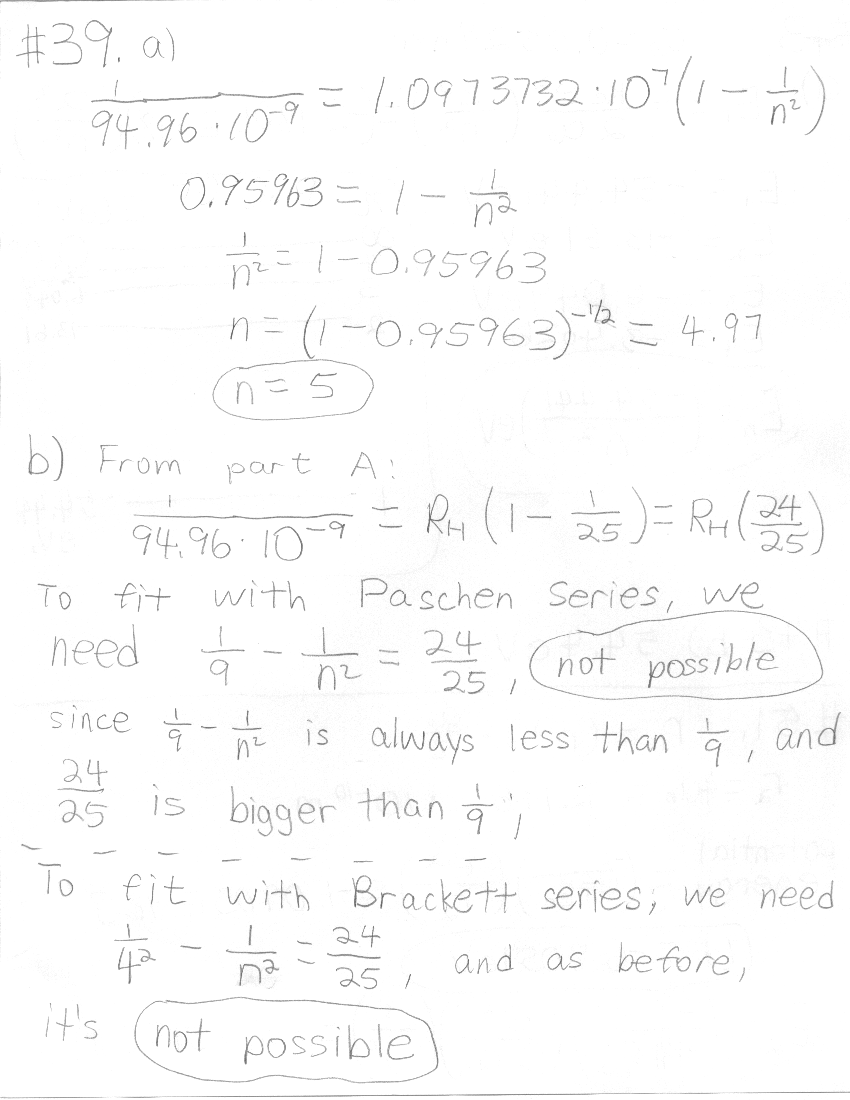 #39. a)
1/(94.96·10⁻⁹) = 1.0973732·10⁷(1 − 1/n²)
0.95963 = 1 − 1/n²
1/n² = 1 − 0.95963
n = (1 − 0.95963)^(−1/2) = 4.97
n = 5
b) From part A:
1/(94.96·10⁻⁹) = R_H (1 − 1/25) = R_H (24/25)
To fit with Paschen Series, we
need 1/9 − 1/n² = 24/25, not possible
since 1/9 − 1/n² is always less than 1/9, and
24/25 is bigger than 1/9;
To fit with Brackett series, we need
1/4² − 1/n² = 24/25, and as before,
it's not possible